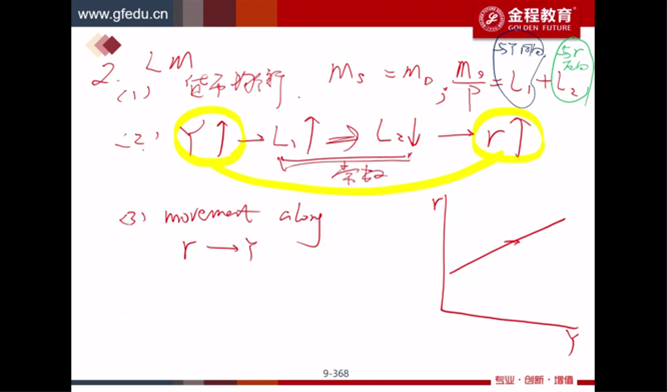 www.gfedu.cn
金程教育
GOLDEN FUTURE
2. LM
与Y同向
与r反向
(1) 货币均衡. Ms = MD; Ms/P = L1 + L2
(2) Y↑ → L1↑ ⇒ L2↓ → r↑
常数
(3) movement along
r → Y
r
Y
9-368
专业·创新·增值